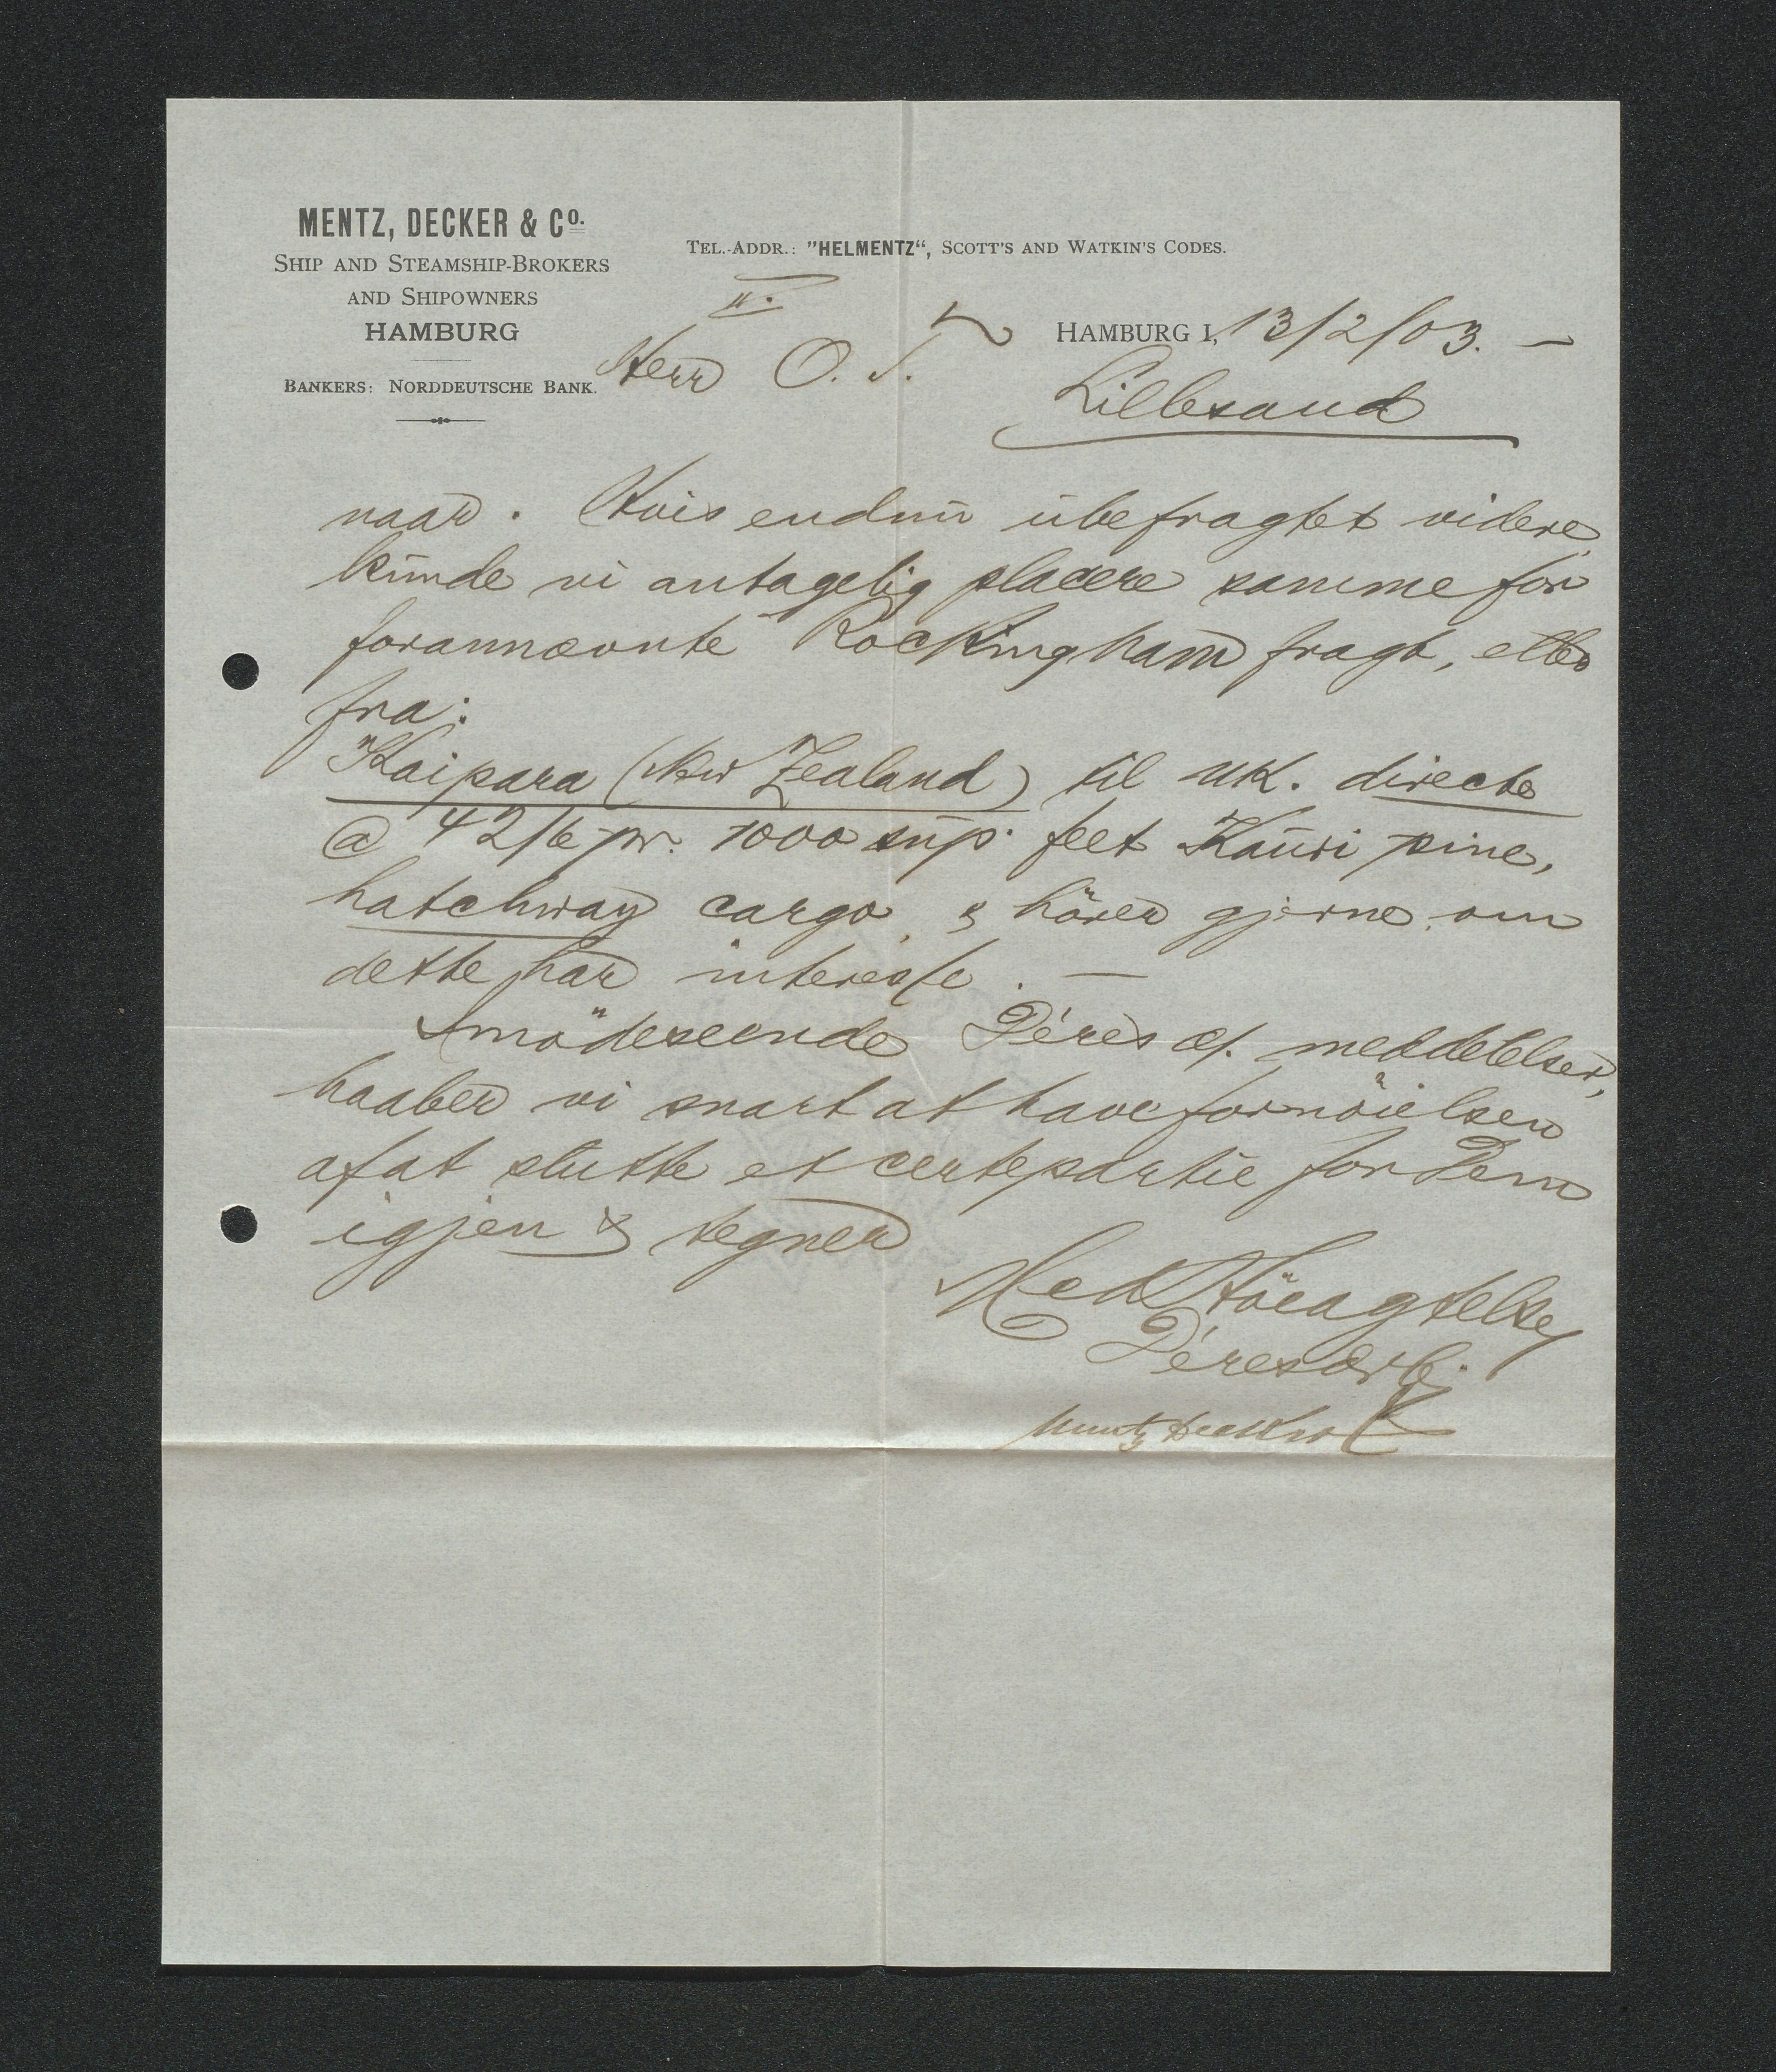 MENTZ, DECKER & Co.
SHIP AND STEAMSHIP-BROKERS
AND SHIPOWNERS
HAMBURG
BANKERS: NORDDEUTSCHE BANK.
TEL.-ADDR.: "HELMENTZ“, SCOTT'S AND WATKIN'S CODES.
II.
HAMBURG 1, 13/2/03. —
Herr O. T.
Lillesand
naar. Hvis endnū übefragtet videre
künde vi antagelig placere samme for
forannævnte Rockingham fragt, eller
fra:
Kaipara (New Zealand) til UK. directe
@ 42/6 pr. 1000 sūp. feet Kaūri pine,
hatchway cargo, & hörer gjerne om
dette har interesse. —
Imödeseende Déres æ. meddelelser,
haaber vi snart at have fornöielsen
af at slutte et certepartie for Dem
igjen & tegner
Med Höiagtelse
Déres ærb.
Mentz Decker &